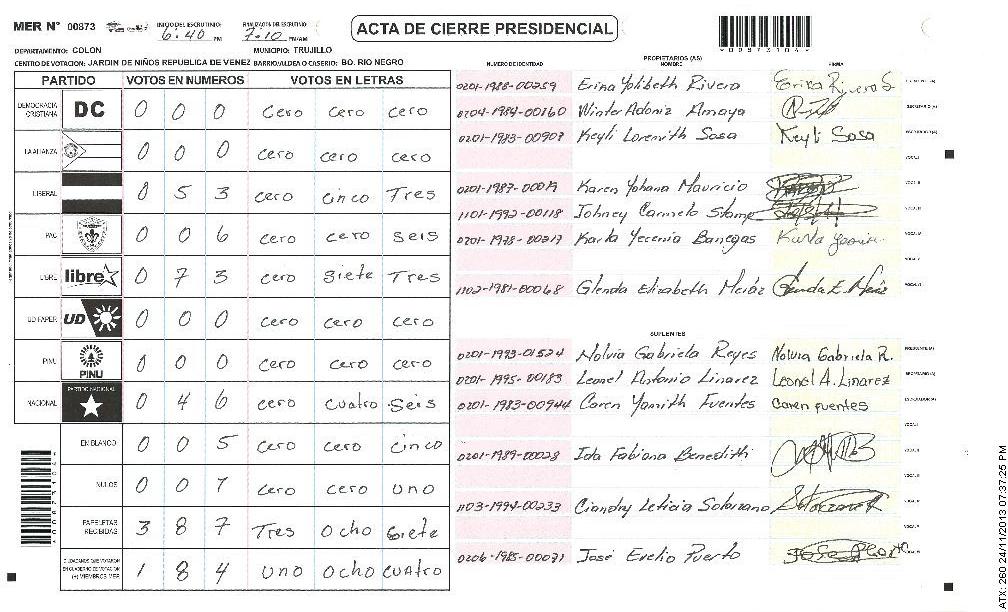 MER N° 00873 INICIO DEL ESCRUTINIO: 6:40 PM FINALIZACION DEL ESCRUTINIO: 7:10 PM/AM
ACTA DE CIERRE PRESIDENCIAL
DEPARTAMENTO: COLON MUNICIPIO: TRUJILLO
CENTRO DE VOTACION: JARDIN DE NIÑOS REPUBLICA DE VENEZ BARRIO/ALDEA O CASERIO: BO. RIO NEGRO
PARTIDO VOTOS EN NUMEROS VOTOS EN LETRAS
DEMOCRACIA CRISTIANA DC 0 0 0 cero cero cero
LA ALIANZA 0 0 0 cero cero cero
LIBERAL 0 5 3 cero cinco Tres
PAC 0 0 6 cero cero seis
LIBRE libre 0 7 3 cero siete Tres
UD FAPER UD 0 0 0 cero cero cero
PINU PINU 0 0 0 cero cero cero
NACIONAL PARTIDO NACIONAL 0 4 6 cero cuatro seis
EN BLANCO 0 0 5 cero cero cinco
NULOS 0 0 7 cero cero uno
PAPELETAS RECIBIDAS 3 8 7 Tres ocho siete
CIUDADANOS QUE VOTARON EN CUADERNO DE VOTACION (+) MIEMBROS MER 1 8 4 uno ocho cuatro
PROPIETARIOS (AS)
NUMERO DE IDENTIDAD NOMBRE FIRMA
0201-1988-00259 Erika Yolibeth Rivera Erika Rivera S.
0704-1984-00160 Winter Adoniz Amaya
0201-1983-00907 Keyli Lorenith Sosa Keyli Sosa
0201-1987-00019 Karen Yohana Mauricio
1101-1992-00118 Johney Carmelo
0201-1978-00217 Karla Yecenia Banegas Karla
1102-1981-00068 Glenda Elizabeth
SUPLENTES
0201-1993-01524 Nolvia Gabriela Reyes Nolvia Gabriela R.
0201-1995-00183 Leonel Antonio Linarez Leonel A. Linarez
0201-1983-00944 Caren Yamith Fuentes Caren fuentes
0201-1989-00028 Ida Fabiana Benedith
1103-1994-00233 Leticia Solorzano
0206-1985-00071 José Evelio Puerto
00873104
ATX: 260 24/11/2013 07:37:25 PM